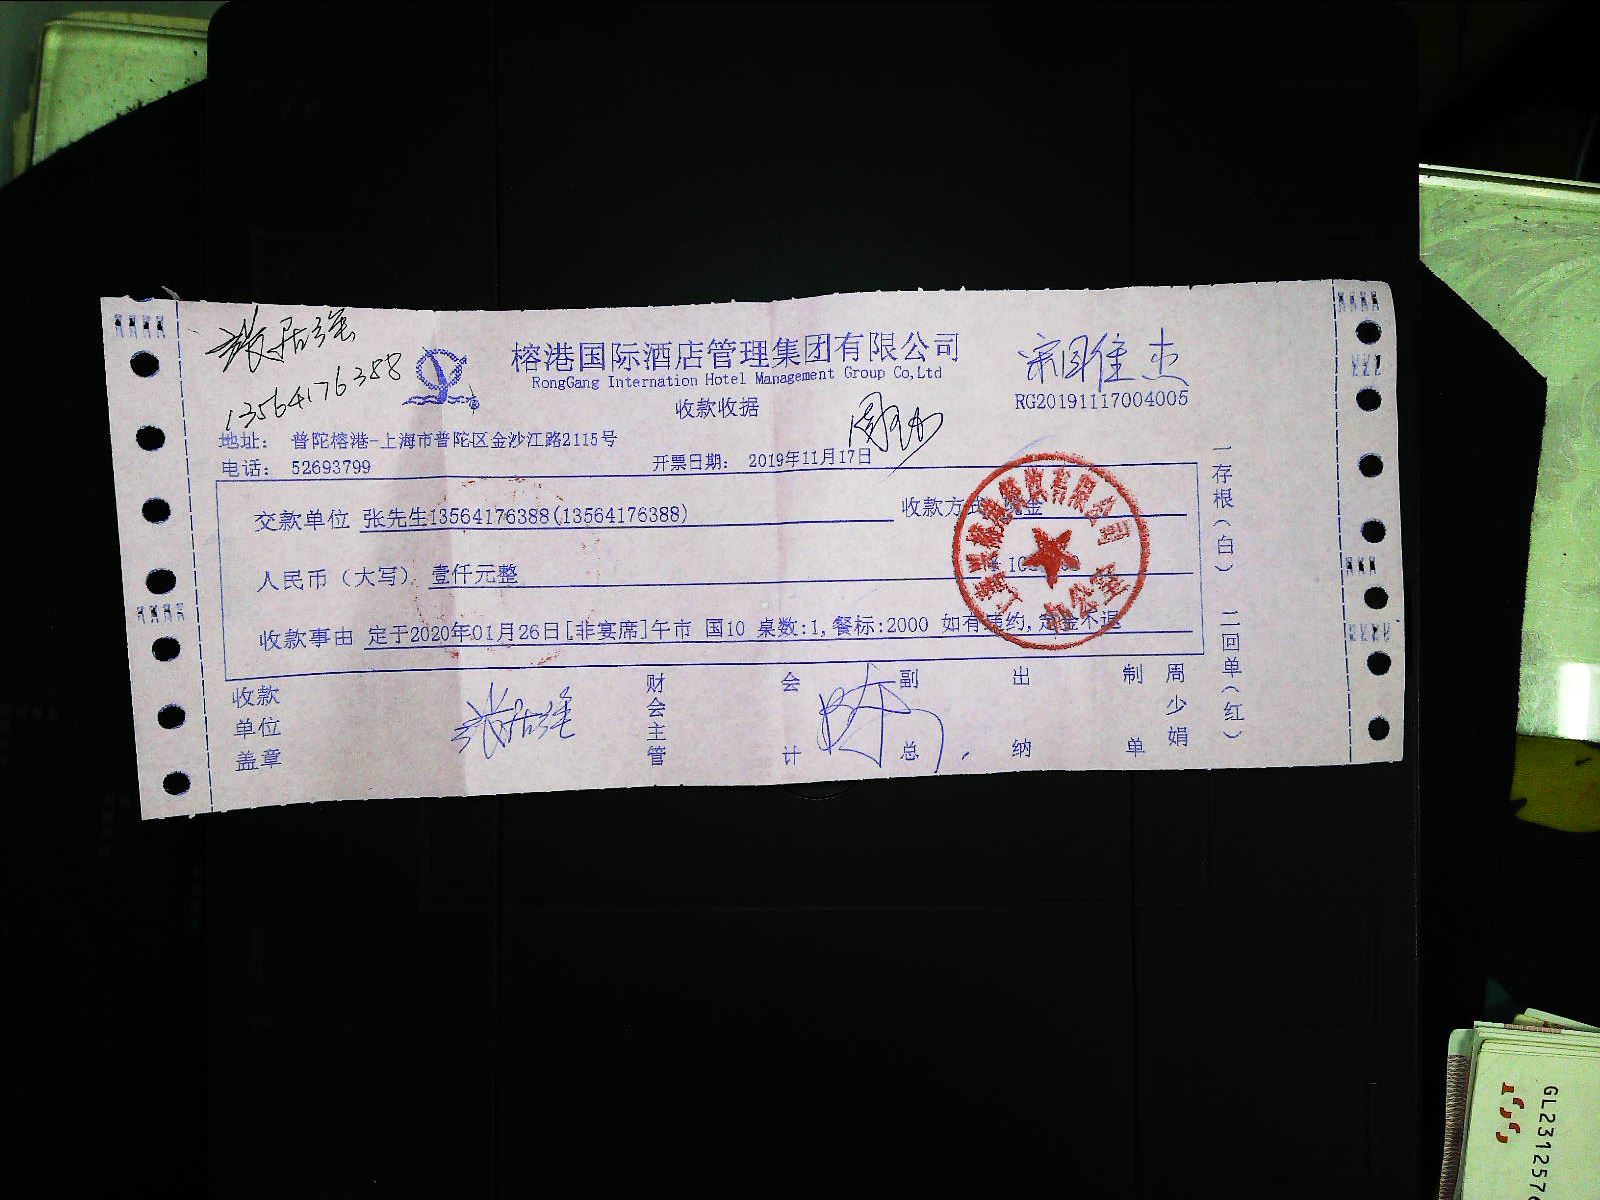 张居强
13564176388
榕港国际酒店管理集团有限公司
RongGang Internation Hotel Management Group Co,Ltd
收款收据
RG20191117004005
地址: 普陀榕港-上海市普陀区金沙江路2115号
电话: 52693799
开票日期: 2019年11月17日
交款单位 张先生13564176388(13564176388)
收款方式 现金
人民币（大写） 壹仟元整
收款事由 定于2020年01月26日[非宴席]午市 国10 桌数:1,餐标:2000 如有违约,定金不退
收款单位盖章
张居强
财会主管
会计
副总
出纳
制单 周少娟
一存根(白) 二回单(红)
餐饮有限公司
办公室
GL2312576